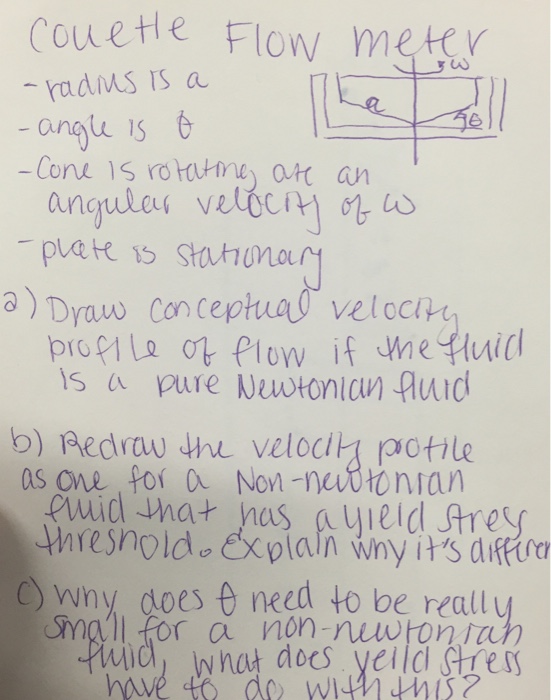 Couette Flow meter
ω
- radius is a
a
θ
- angle is θ
- Cone is rotating at an
angular velocity of ω
- plate is stationary
a) Draw conceptual velocity
profile of flow if the fluid
is a pure Newtonian fluid
b) Redraw the velocity profile
as one for a Non-newtonian
fluid that has a yield stress
threshold. Explain why it's differen
c) Why does θ need to be really
small for a non-newtonian
fluid, what does yeild stress
have to do with this?